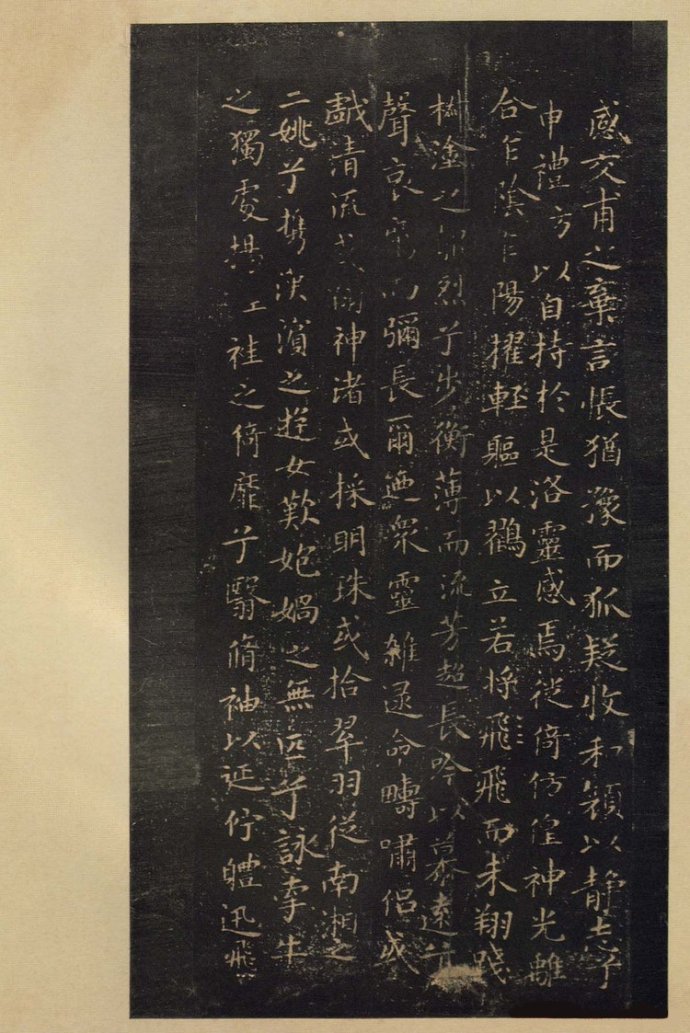 感交甫之棄言悵猶豫而狐疑收和顏以静志兮
申禮防以自持於是洛靈感焉徙倚仿偟神光離
合乍陰乍陽擢輕軀以鶴立若將飛飛而未翔踐
椒塗之郁烈兮步衡薄而流芳超長吟以慕遠兮
聲哀厲而彌長爾迺衆靈雜遝命疇嘯侶或
戲清流或翔神渚或採明珠或拾翠羽從南湘之
二姚兮攜漢濱之遊女歎匏媧之無匹兮詠牽牛
之獨處揚輕袿之倚靡兮翳脩袖以延佇體迅飛